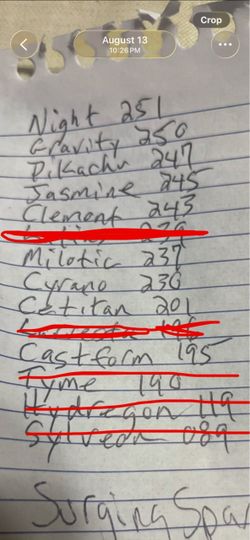 August 13
10:26 PM
Crop
Night 251
Gravity 250
Pikachu 247
Jasmine 245
Clement 243
239
Milotic 237
Cyrano 230
Cetitan 201
Castform 195
Tyme 190
Hydregon 119
Sylveon 089
Surging Spar